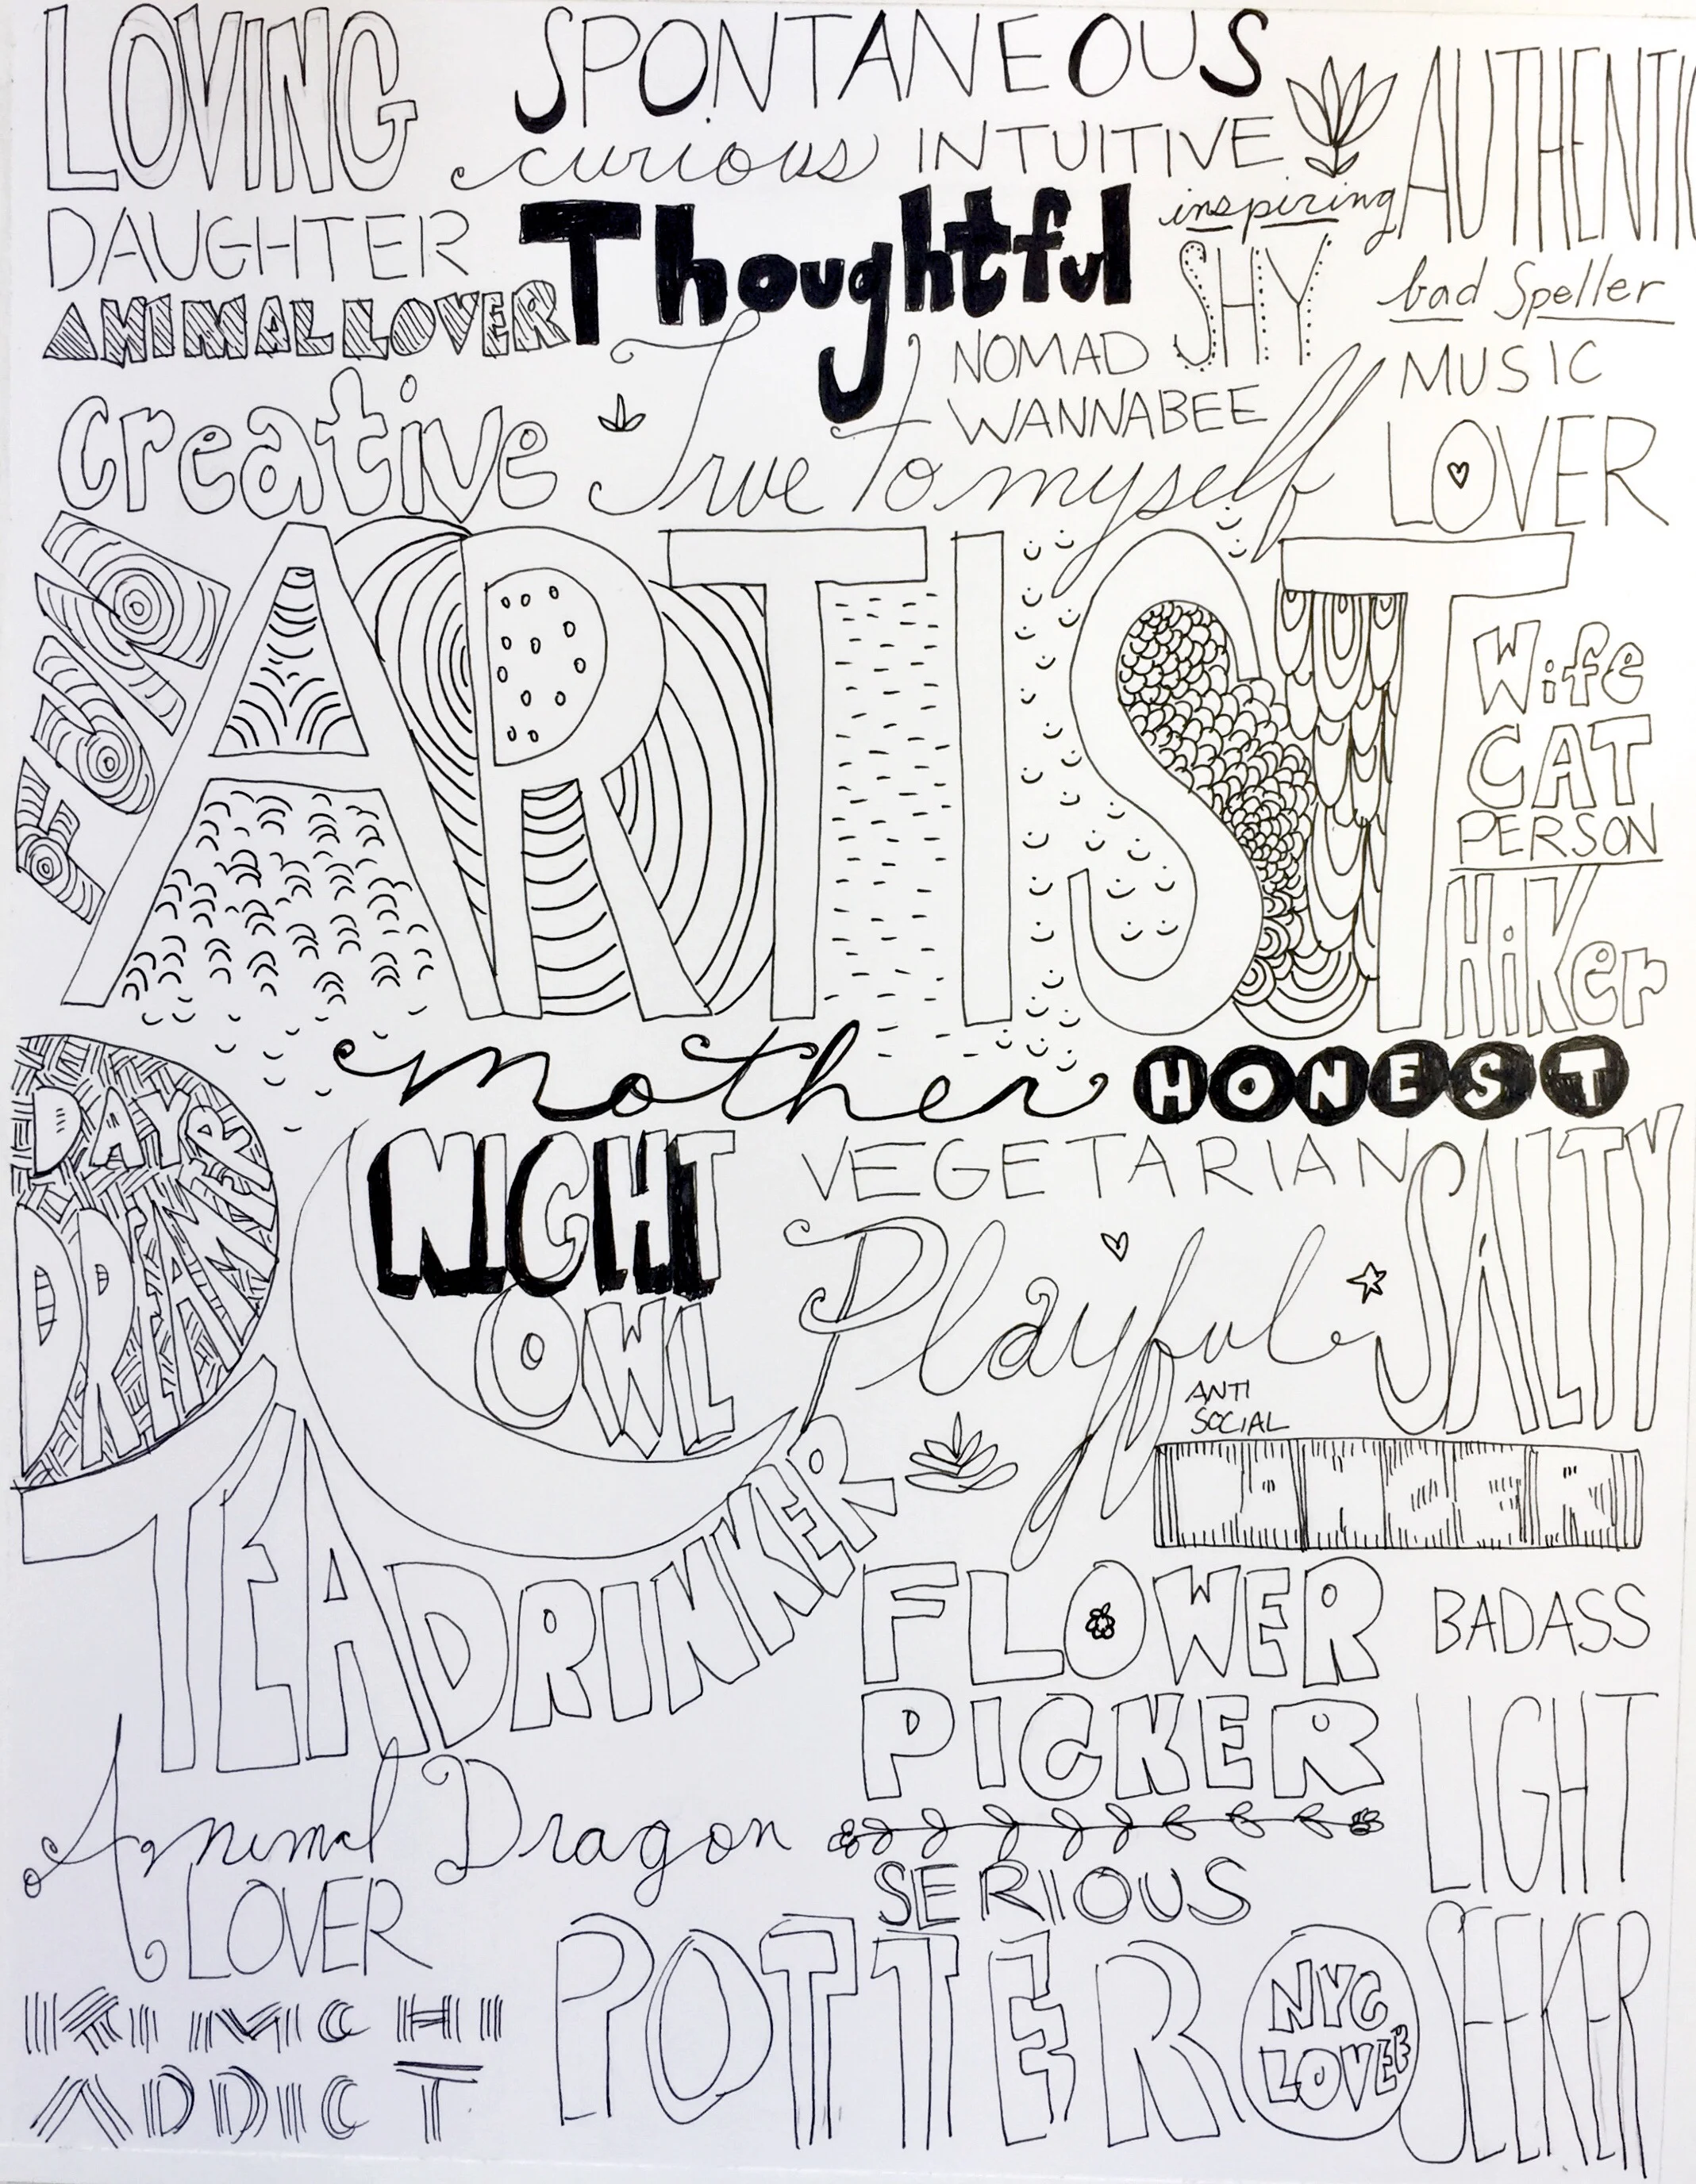 LOVING
SPONTANEOUS
AUTHENTIC
curious INTUITIVE
inspiring
DAUGHTER
Thoughtful
SHY
bad Speller
ANIMAL LOVER
NOMAD
WANNABEE
MUSIC
LOVER
creative
True To myself
ARTIST
Wife
CAT
PERSON
HiKer
mother
HONEST
DAY
DREAMER
NIGHT
OWL
VEGETARIAN
SALTY
Playful
ANTI
SOCIAL
DANCER
TEA DRINKER
FLOWER
PICKER
BADASS
LIGHT
SEEKER
Animal Dragon
LOVER
SERIOUS
KIMCHI
ADDICT
POTTER
NYC
LOVER